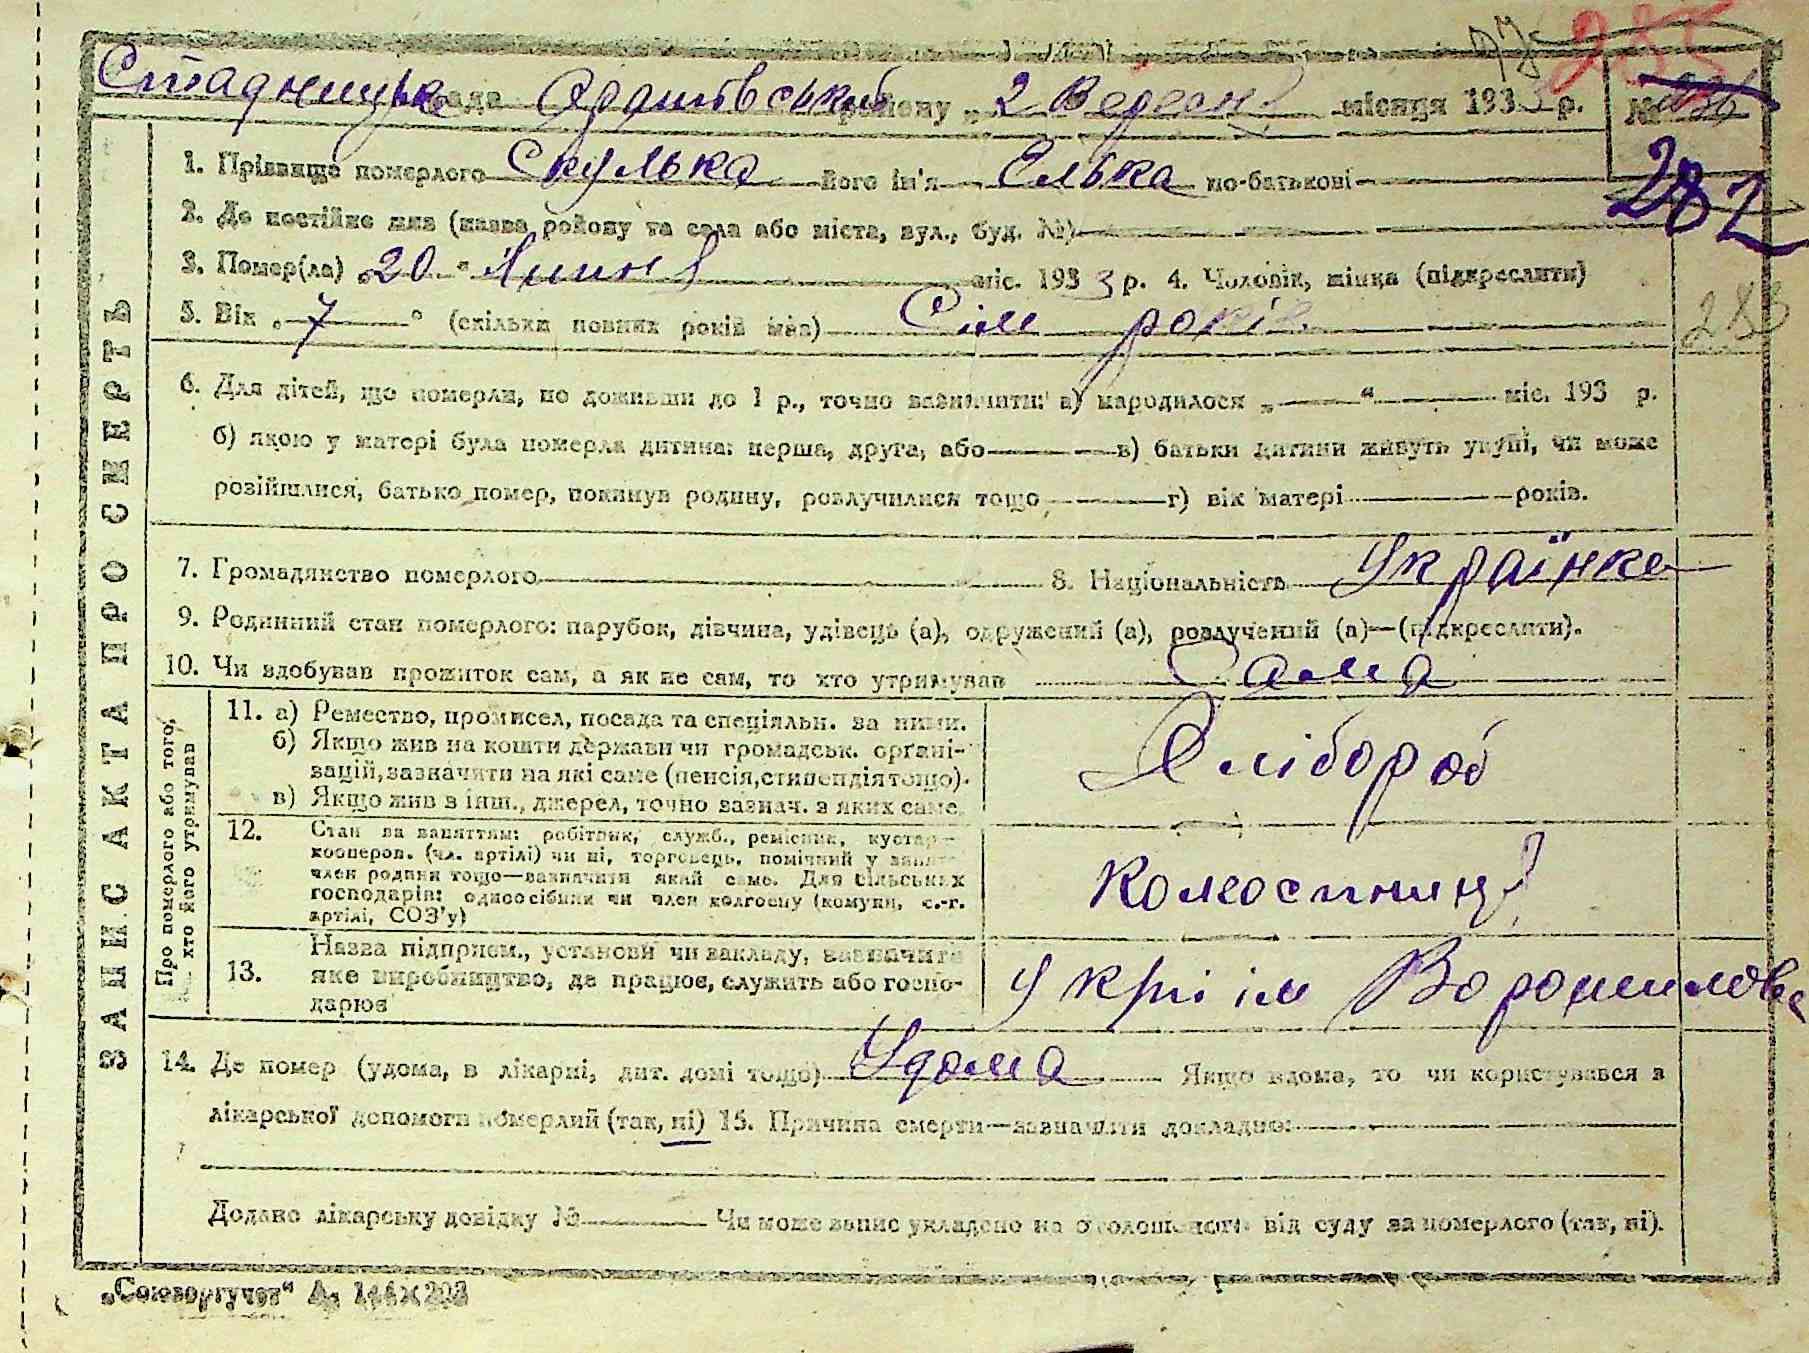 285
Стадницька рада Ораторівський району „2 Вересня місяця 1933 р. №
282
1. Прізвище померлого Скулька його ім'я Елька по-батькові
2. Де постійно жив (назва району та села або міста, вул., буд. №)
3. Помер(ла) „20“ Липня міс. 1933 р. 4. Чоловік, жінка (підкреслити)
5. Вік „7“ (скільки повних років мав) Сім років
283
6. Для дітей, що померли, не доживши до 1 р., точно зазначити: а) народилося „ “ міс. 193 р.
б) якою у матері була померла дитина: перша, друга, або в) батьки дитини живуть укупі, чи може
розійшлися, батько помер, покинув родину, розлучилися тощо г) вік матері років.
7. Громадянство померлого 8. Національність Українка
9. Родинний стан померлого: парубок, дівчина, удівець (а), одружений (а), розлучений (а)—(підкреслити).
10. Чи здобував прожиток сам, а як не сам, то хто утримував Сама
ЗАПИС АКТА ПРО СМЕРТЬ
Про померлого або того, хто його утримував
11. а) Ремество, промисел, посада та спеціяльн. за ними.
б) Якщо жив на кошти держави чи громадськ. орґані-
зацій, зазначити на які саме (пенсія, стипендія тощо).
в) Якщо жив з інш., джерел, точно зазнач. з яких саме.
Хлібороб
12. Стан за заняттям: робітник, служб., ремісник, кустар—
кооперов. (чл. артілі) чи ні, торговець, помічний у занят.
член родини тощо—зазначити який саме. Для сільських
господарів: одноосібник чи член колгоспу (комуни, с.-г.
артілі, СОЗ'у)
Колгоспниця
13. Назва підприєм., установи чи закладу, зазначити
яке виробництво, де працює, служить або госпо-
дарює
ім Ворошилова
14. Де помер (удома, в лікарні, дит. домі тощо) Удома Якщо вдома, то чи користувався з
лікарської допомоги померлий (так, ні) 15. Причина смерти—зазначити докладно:
Додано лікарську довідку № Чи може запис укладено на оголошення від суду за померлого (так, ні).
„Союзоргучет“